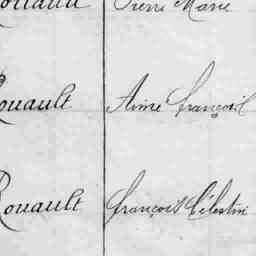 Rouault Pierre Marie
Rouault Aimé François
Rouault François Célestin